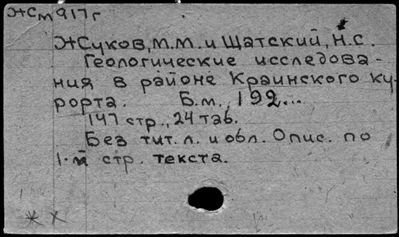 ЖСм917г
ЖСуков, м.м. и Щатский, Н.С.
Геологические исследова-
ния в районе Краинского ку-
рорта. Б.м., 192...
147 стр., 24 таб.
Без тит. л. и обл. Опис. по
1-й стр. текста.